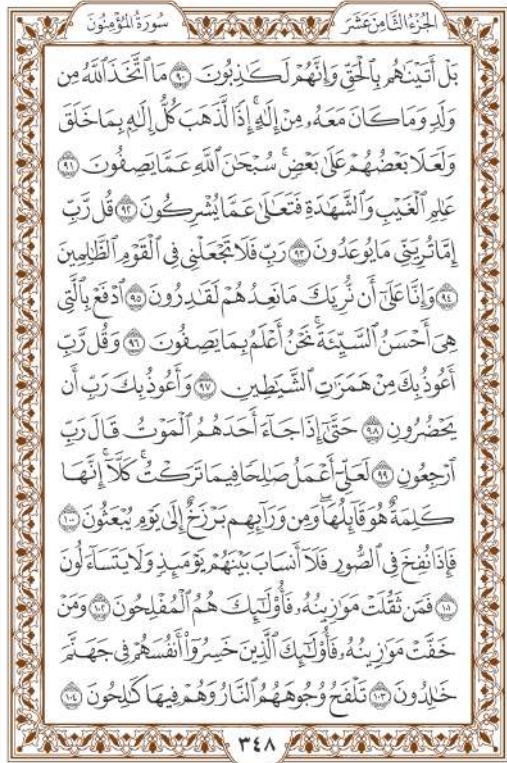 سُورَةُ المُؤْمِنُون
الجُزْءُ الثَّامِنَ عَشَرَ
بَلۡ أَتَيۡنَٰهُم بِٱلۡحَقِّ وَإِنَّهُمۡ لَكَٰذِبُونَ ٩٠ مَا ٱتَّخَذَ ٱللَّهُ مِن
وَلَدٖ وَمَا كَانَ مَعَهُۥ مِنۡ إِلَٰهٍۚ إِذٗا لَّذَهَبَ كُلُّ إِلَٰهِۭ بِمَا خَلَقَ
وَلَعَلَا بَعۡضُهُمۡ عَلَىٰ بَعۡضٖۚ سُبۡحَٰنَ ٱللَّهِ عَمَّا يَصِفُونَ ٩١
عَٰلِمِ ٱلۡغَيۡبِ وَٱلشَّهَٰدَةِ فَتَعَٰلَىٰ عَمَّا يُشۡرِكُونَ ٩٢ قُل رَّبِّ
إِمَّا تُرِيَنِّي مَا يُوعَدُونَ ٩٣ رَبِّ فَلَا تَجۡعَلۡنِي فِي ٱلۡقَوۡمِ ٱلظَّٰلِمِينَ
٩٤ وَإِنَّا عَلَىٰٓ أَن نُّرِيَكَ مَا نَعِدُهُمۡ لَقَٰدِرُونَ ٩٥ ٱدۡفَعۡ بِٱلَّتِي
هِيَ أَحۡسَنُ ٱلسَّيِّئَةَۚ نَحۡنُ أَعۡلَمُ بِمَا يَصِفُونَ ٩٦ وَقُل رَّبِّ
أَعُوذُ بِكَ مِنۡ هَمَزَٰتِ ٱلشَّيَٰطِينِ ٩٧ وَأَعُوذُ بِكَ رَبِّ أَن
يَحۡضُرُونِ ٩٨ حَتَّىٰٓ إِذَا جَآءَ أَحَدَهُمُ ٱلۡمَوۡتُ قَالَ رَبِّ
ٱرۡجِعُونِ ٩٩ لَعَلِّيٓ أَعۡمَلُ صَٰلِحٗا فِيمَا تَرَكۡتُۚ كَلَّآۚ إِنَّهَا
كَلِمَةٌ هُوَ قَآئِلُهَاۖ وَمِن وَرَآئِهِم بَرۡزَخٌ إِلَىٰ يَوۡمِ يُبۡعَثُونَ ١٠٠
فَإِذَا نُفِخَ فِي ٱلصُّورِ فَلَآ أَنسَابَ بَيۡنَهُمۡ يَوۡمَئِذٖ وَلَا يَتَسَآءَلُونَ
١٠١ فَمَن ثَقُلَتۡ مَوَٰزِينُهُۥ فَأُوْلَٰٓئِكَ هُمُ ٱلۡمُفۡلِحُونَ ١٠٢ وَمَنۡ
خَفَّتۡ مَوَٰزِينُهُۥ فَأُوْلَٰٓئِكَ ٱلَّذِينَ خَسِرُوٓاْ أَنفُسَهُمۡ فِي جَهَنَّمَ
خَٰلِدُونَ ١٠٣ تَلۡفَحُ وُجُوهَهُمُ ٱلنَّارُ وَهُمۡ فِيهَا كَٰلِحُونَ ١٠٤
٣٤٨